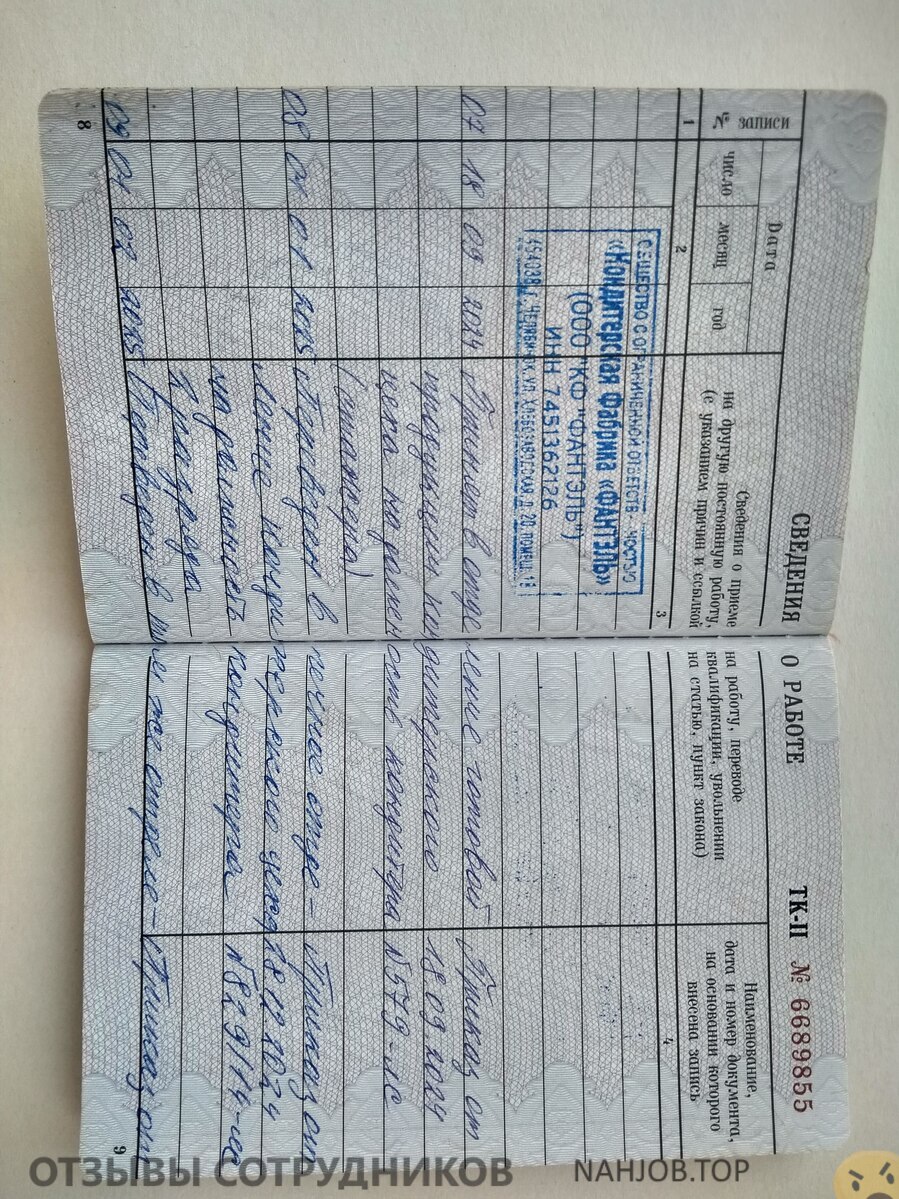 СВЕДЕНИЯ О РАБОТЕ
ТК-II № 6689855
№ записи
Дата
число
месяц
год
Сведения о приеме на работу, переводе
на другую постоянную работу, квалификации, увольнении
(с указанием причин и ссылкой на статью, пункт закона)
Наименование,
дата и номер документа,
на основании которого
внесена запись
1
2
3
4
ОБЩЕСТВО С ОГРАНИЧЕННОЙ ОТВЕТСТВЕННОСТЬЮ
«Кондитерская Фабрика «ФАНТЭЛЬ»
(ООО "КФ "ФАНТЭЛЬ")
ИНН 7451362126
454038, Г. ЧЕЛЯБИНСК, УЛ. ХЛЕБОЗАВОДСКАЯ, Д. 20, ПОМЕЩ. 19
07 18 09 2014 Принят в отделение готовой Приказ от
продукции кондитерского 18 09 2014
цеха на должность кондитера N579-лс
08 01 01 2015 Переведен в печное отде- Приказ от
ление кондитерского цеха
на должность кондитера N829/14-лс
3 разряда
09 01 02 2015 Переведен в том же отделе- Приказ от
8
9
ОТЗЫВЫ СОТРУДНИКОВ
NAHJOB.TOP